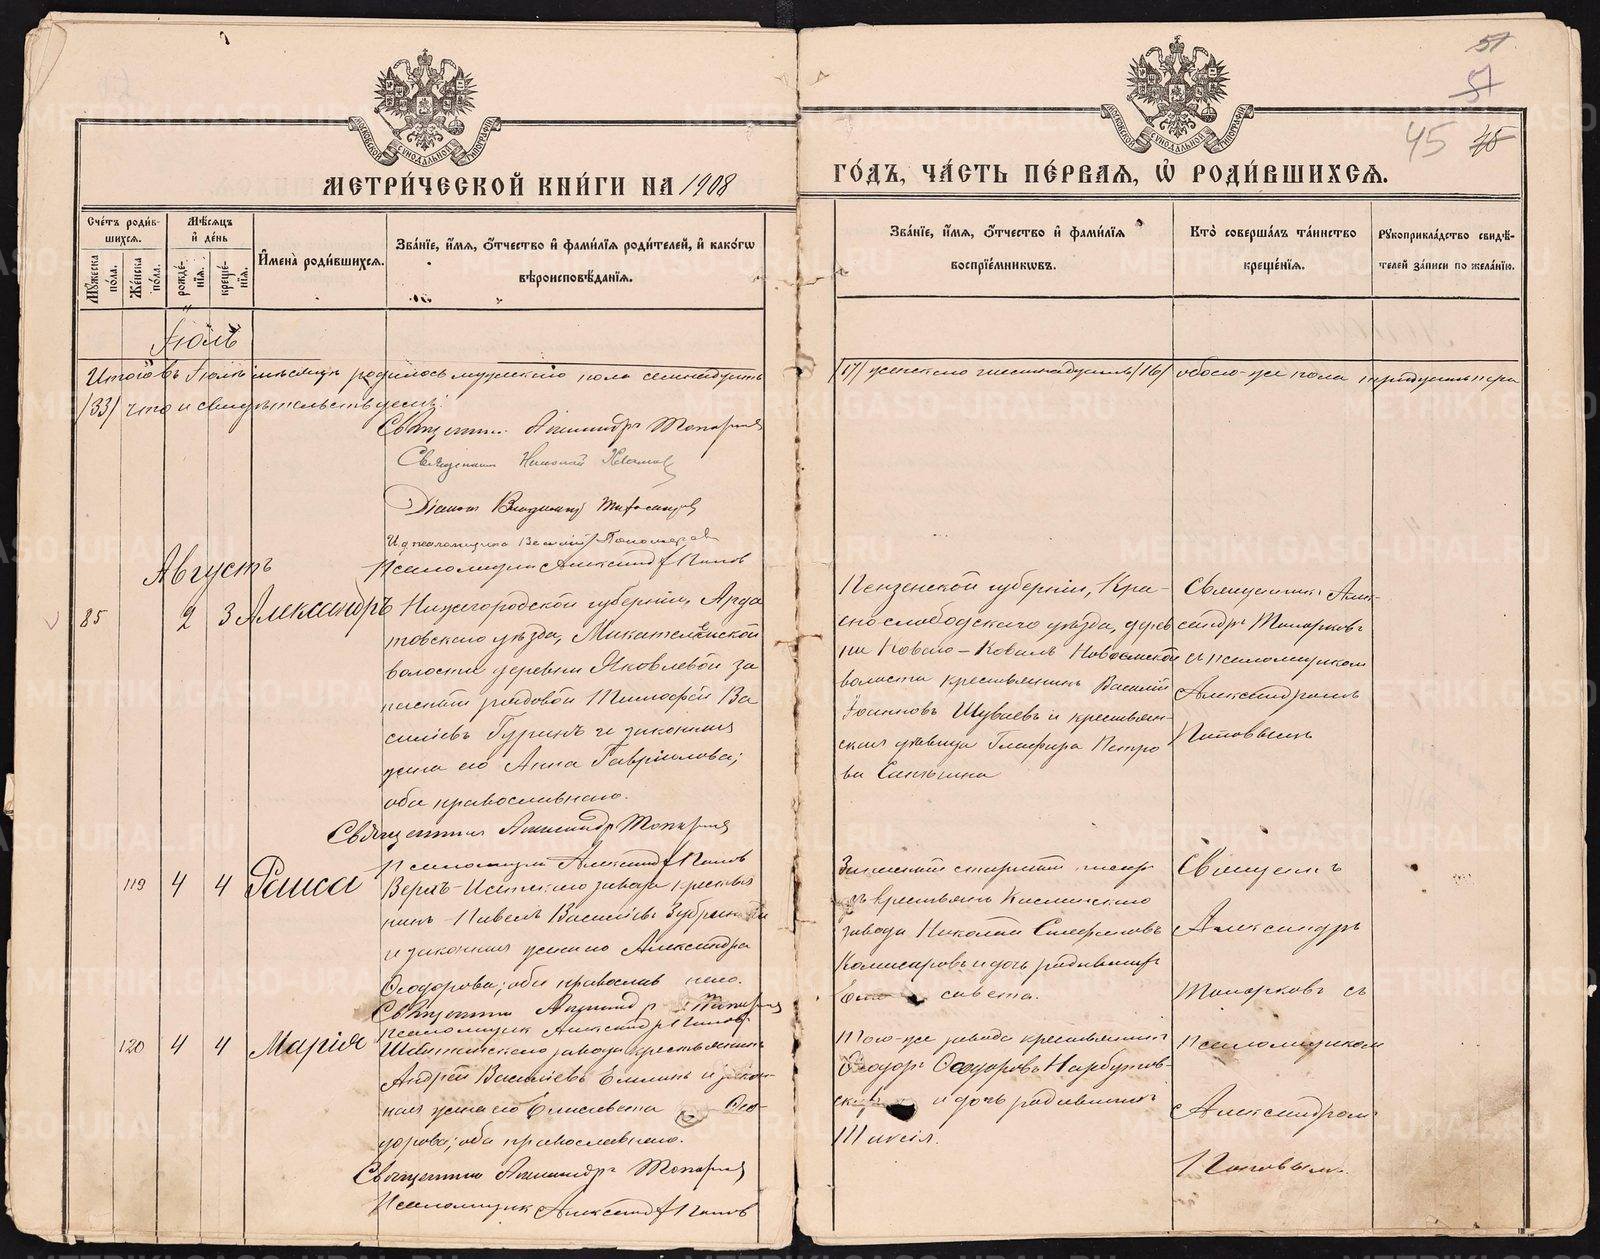 МЕТРИ́ЧЕСКОЙ КНИ́ГИ НА 1908
ГО́ДЪ, ЧА́СТЬ ПЕ́РВАЯ, Ѡ҆ РОДИ́ВШИХСЯ.
45
Сче́тъ роди́вшихся.
Мѣ́сяцъ и҆ де́нь
Му́жеска по́ла.
Же́нска по́ла.
рожде́нїя.
креще́нїя.
И҆мена̀ роди́вшихся.
Зва́нїе, и҆́мя, ѻ҆́тчество и҆ фами́лїя роди́телей, и҆ како́гѡ
вѣроисповѣ́данїя.
Зва́нїе, и҆́мя, ѻ҆́тчество и҆ фами́лїя
воспрїе́мникѡвъ.
Кто̀ соверша́лъ та́инство
креще́нїя.
Рꙋкоприкла́дство свидѣ́-
телей за́писи по жела́нїю.
Іюль
Итого въ Іюлѣ мѣсяцѣ родилось мужескаго пола семнадцать
/17/ женскаго шестнадцать /16/ обоего-же пола тридцать три
/33/ что и свидѣтельствуемъ:
Священникъ Александръ Топорковъ
Священникъ Николай
Діаконъ Владиміръ
И. д. псаломщика Василій Пономаревъ
Псаломщикъ Александръ Поповъ
Августъ
85 2 3 Александръ
Нижегородской губерніи, Арда
товскаго уѣзда,
волости деревни Яковлевой за
пасный рядовой Тимофей Ва
силіевъ Гуринъ и законная
жена его Анна Гавріилова;
оба православнаго.
Священникъ Александръ Топорковъ
Псаломщикъ Александръ Поповъ
Пензенской губерніи, Кра-
снослободскаго уѣзда, дерев
ни
волости крестьянинъ Василій
Іоанновъ Шуваевъ и крестьян-
ская дѣвица Глафира Петро
ва
Священникъ Алек-
сандръ Топорковъ
съ псаломщикомъ
Александромъ
Поповымъ
119 4 4 Раиса
Верхъ-Исетскаго завода крестья
нинъ Павелъ Василіевъ
и законная жена его Александра
Ѳеодорова; оба православнаго.
Священникъ Александръ Топорковъ
Псаломщикъ Александръ Поповъ
Запасный старшій писарь
изъ крестьянъ Каслинскаго
завода Николай
Комисаровъ и дочь родившихъ
Елисавета.
Священникъ
Александръ
Топорковъ съ
псаломщикомъ
Александромъ
Поповымъ.
120 4 4 Марія
Шайтанскаго завода крестьянинъ
Андрей Василіевъ Елькинъ и закон-
ная жена его Елисавета Ѳео-
дорова; оба православнаго.
Священникъ Александръ Топорковъ
Псаломщикъ Александръ Поповъ
Того-же завода крестьянинъ
Ѳеодоръ Ѳеодоровъ Нарбутов-
скихъ и дочь родившихъ
Таисія.
METRIKI.GASO-URAL.RU